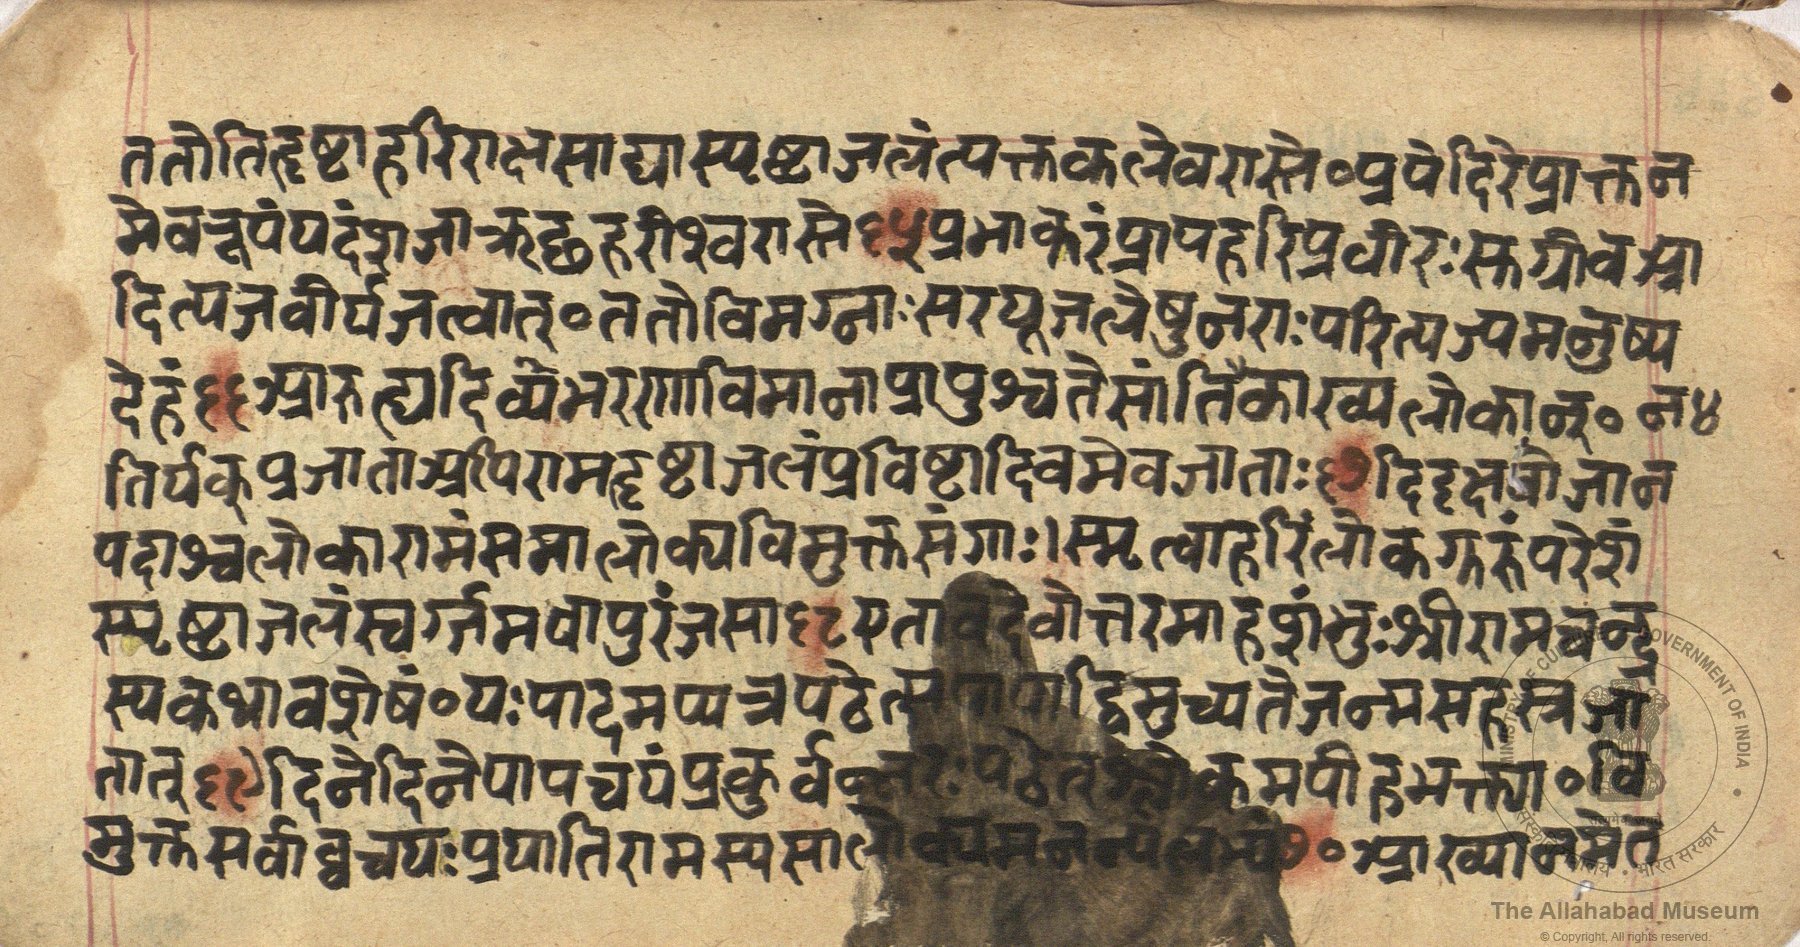 ततोतिहृष्टाहरिराक्षसाद्यास्पृष्टाजलंत्यक्तकलेवरास्ते॰प्रपेदिरेप्राक्तन
मेवरूपंयदंशजाऋछहरीश्वरास्ते६५प्रभाकरंप्रापहरिप्रवीरःसुग्रीवआ
दित्यजवीर्यजत्वात्॰ततोविमग्नाःसरयूजलेषुनराःपरित्यज्यमनुष्य
देहं६६आरुह्यदिव्यैभररणाविमानाप्रापुश्चतेसांतिकाख्यलोकान्॰न४
तिर्यक्प्रजाताअपिरामहृष्टाजलंप्रविष्टादिवमेवजाताः६७दिदृक्षवोजान
पदाश्चलोकारामंसमालोक्यविमुक्तसंगाः।स्मृत्वाहरिंलोकगुरुंपरेशं
स्पृष्टाजलंस्वर्ग्गमवापुरंजसा६८एतावदेवोत्तरमाहशंभुःश्रीरामचन्द्र
स्यकथावशेषं॰यःपादमप्यत्रपठेत्सपापाद्विमुच्यतेजन्मसहस्रजा
तात्६९दिनेदिनेपापचयंप्रकुर्वन्नरःपठेत्श्लोकमपीहभक्त्या॰वि
मुक्तसर्वाघचयःप्रयातिरामस्यसालोक्यमनन्यलभ्यं७॰आख्यानमेत
MINISTRY OF CULTURE GOVERNMENT OF INDIA
सत्यमेव जयते
संस्कृति मंत्रालय • भारत सरकार
The Allahabad Museum
© Copyright, All rights reserved.